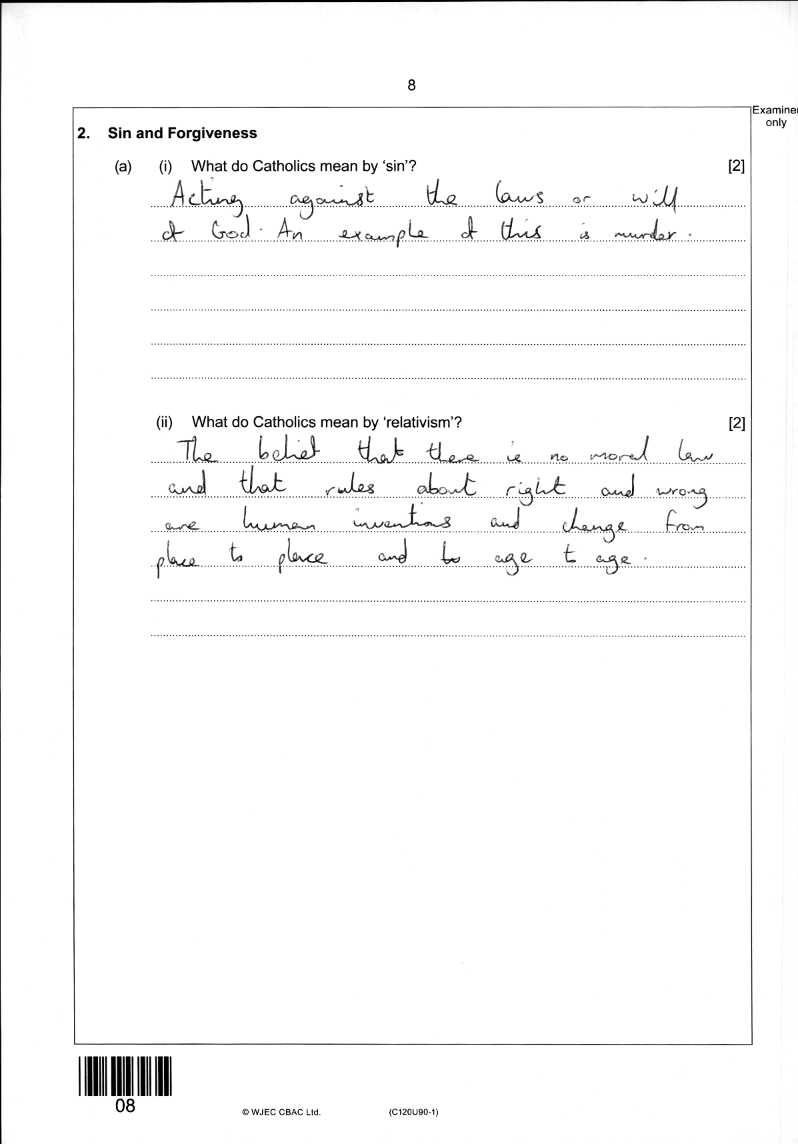 8
Examiner
only
2. Sin and Forgiveness
(a) (i) What do Catholics mean by ‘sin’? [2]
Acting against the laws or will
of God. An example of this is murder.
(ii) What do Catholics mean by ‘relativism’? [2]
The belief that there is no moral law
and that rules about right and wrong
are human inventions and change from
place to place and to age to age.
08
© WJEC CBAC Ltd. (C120U90-1)